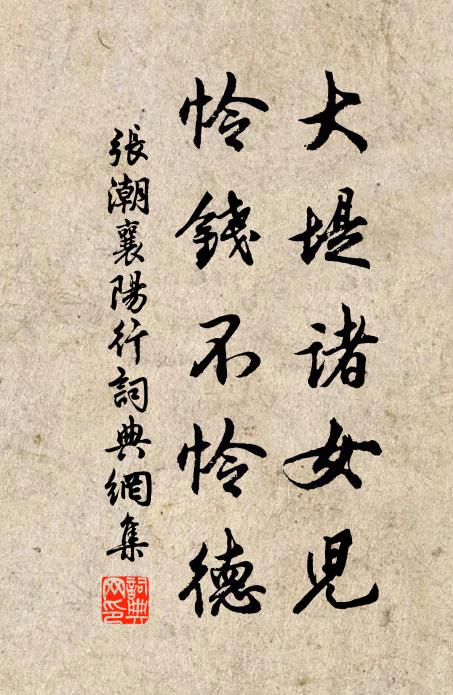 大堤诸女児
怜錢不怜德
張潮襄陽行詞典網集
詞典
网印